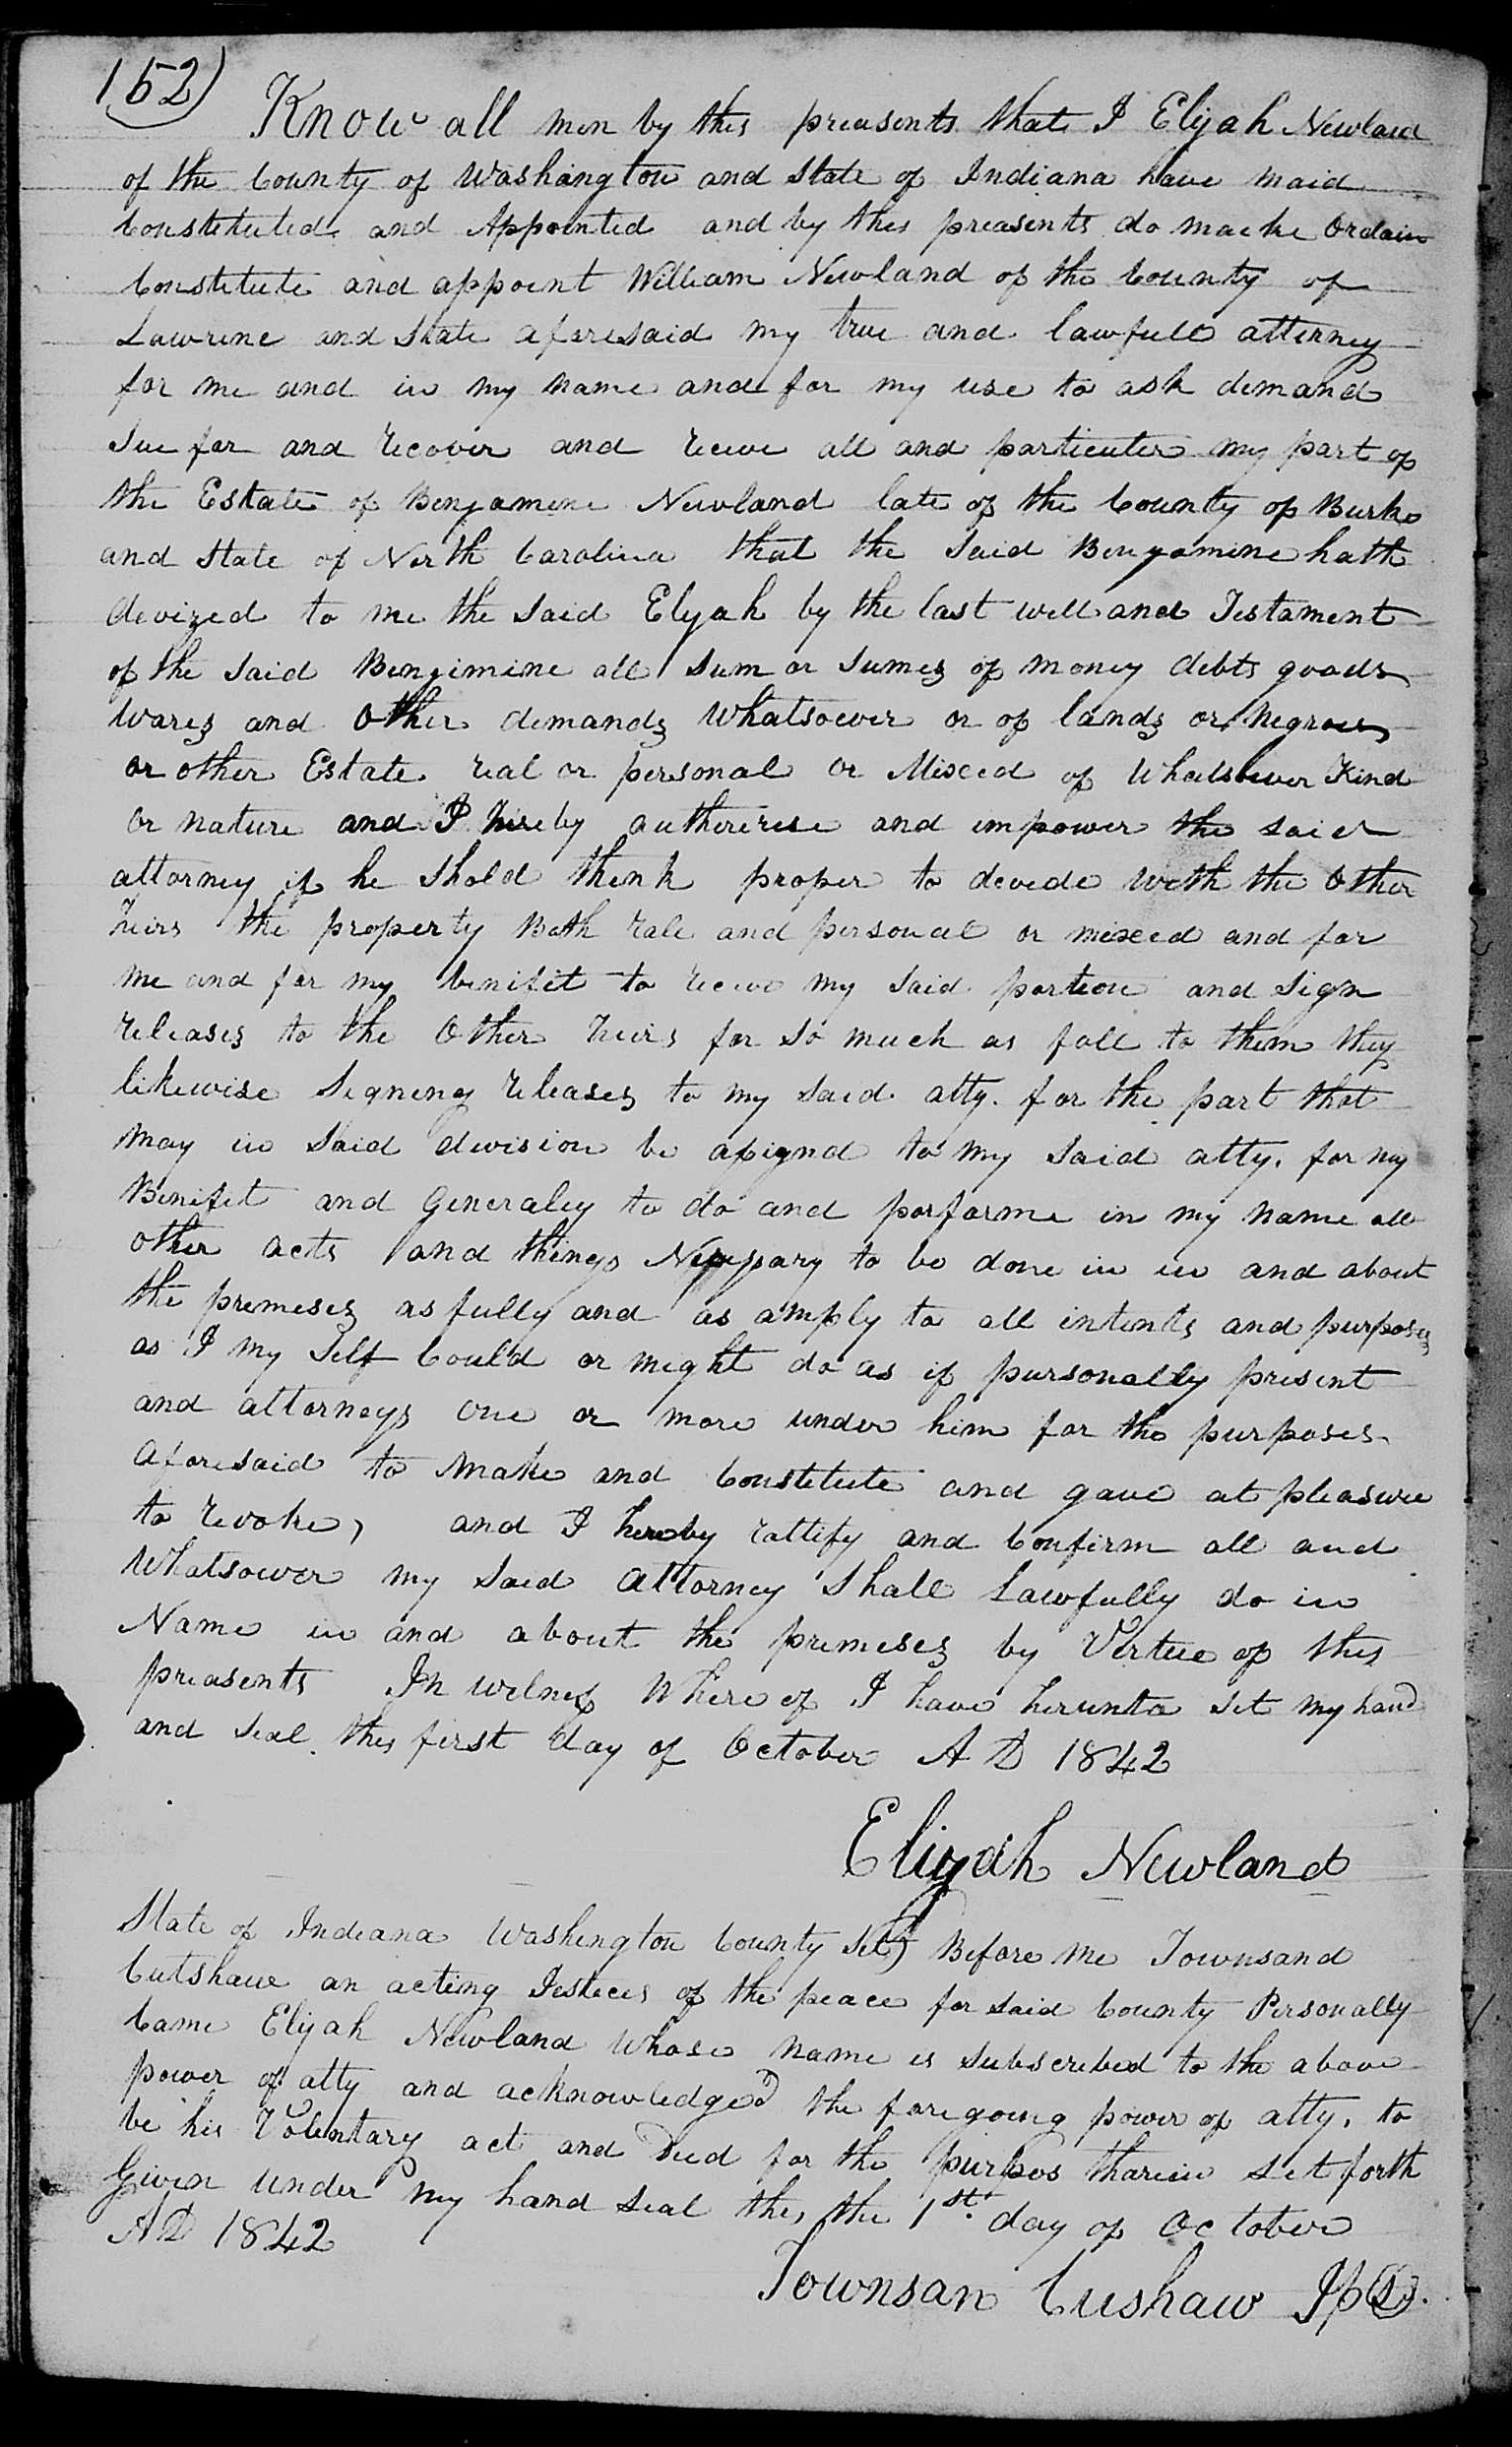 152)
Know all men by this preasents that I Elijah Newland
of the County of Washington and State of Indiana have maid
Constituted and Appointed and by this preasents do macke Ordain
Constitute and appoint William Newland of the County of
Lawrence and State aforesaid my true and lawfull atterney
for me and in my name and for my use to ask demand
Sue for and recover and receve all and particuler my part of
the Estate of Benjamine Newland late of the County of Burke
and State of North Carolina that the said Benjamine hath
devized to me the said Elijah by the last will and Testament
of the said Benjimine all sum or sumes of money debts goods
wares and other demands whatsoever or of lands or Negroes
or other Estate real or personal or Mixced of Whatsoever Kind
or nature and I hereby autherise and impower the said
attorney if he Shold think proper to devide with the Other
heirs the property Both rale and personal or mixced and for
me and for my benifit to receve my said portion and sign
releases to the Other heirs for so much as fall to them they
likewise signing releases to my said atty. for the part that
may in said division be assignd to my said atty. for my
Benifit and Generaley to do and porforme in my name all
other acts and things Nessessary to be done in in and about
the premeses as fully and as amply to all intents and purposes
as I my Self Could or might do as if pursonally present
and attorneys one or more under him for the purposes
aforesaid to make and Constitute and gave at pleasure
to revoke, and I hereby rattify and Confirm all and
Whatsoever my said attorney Shall Lawfully do in
Name in and about the premeses by Vertue of this
preasents In witness Where of I have herunto set my hand
and seal this first day of October A D 1842
Elijah Newland
State of Indiana Washington County Sct) Before me Townsand
Cutshaw an acting Jestices of the peace for said County Personally
Came Elijah Newland whose name is subscribed to the above
power of atty and acknowledged the foregoing power of atty. to
be his Volentary act and Deed for the purpos tharein set forth
Given under my hand seal this, the 1st. day of October
AD 1842
Townsan Cushaw JP (S).